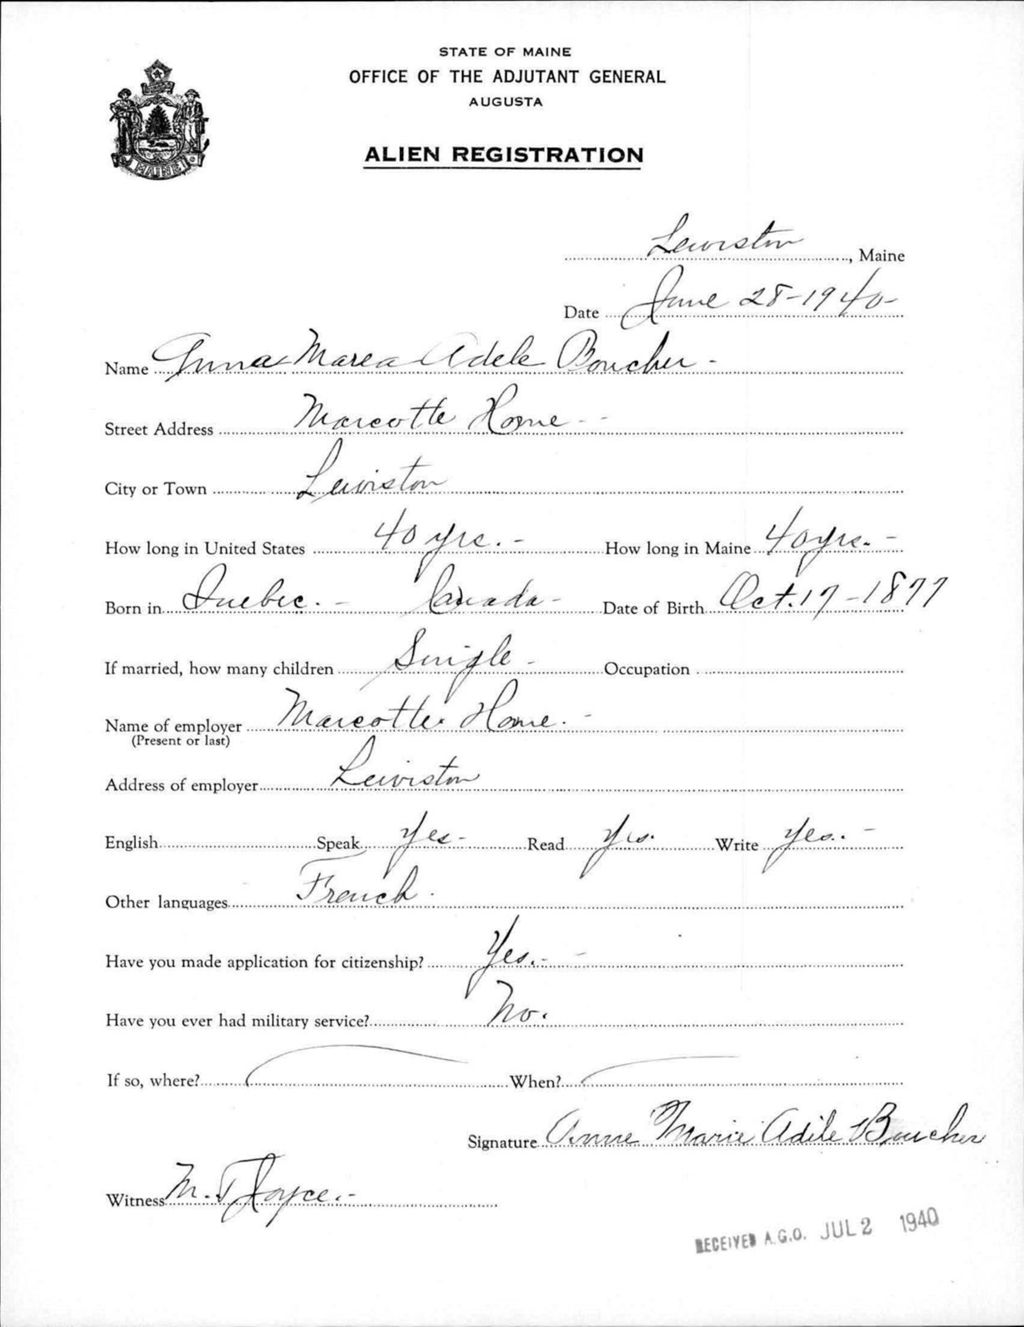 STATE OF MAINE
OFFICE OF THE ADJUTANT GENERAL
AUGUSTA
ALIEN REGISTRATION
MAINE
Lewiston, Maine
Date June 28-1940-
Name Anna Marea Adele Boucher -
Street Address Marcotte Home -
City or Town Lewiston
How long in United States 40 yrs. - How long in Maine 40 yrs. -
Born in Quebec. - Canada - Date of Birth Oct. 17 - 1877
If married, how many children Single - Occupation
Name of employer Marcotte Home. -
(Present or last)
Address of employer Lewiston
English Speak Yes - Read Yes. Write Yes. -
Other languages French.
Have you made application for citizenship? Yes. -
Have you ever had military service? No.
If so, where? When?
Signature Anne Marie Adile Boucher
Witness M. T Joyce. -
RECEIVED A.G.O. JUL 2 1940